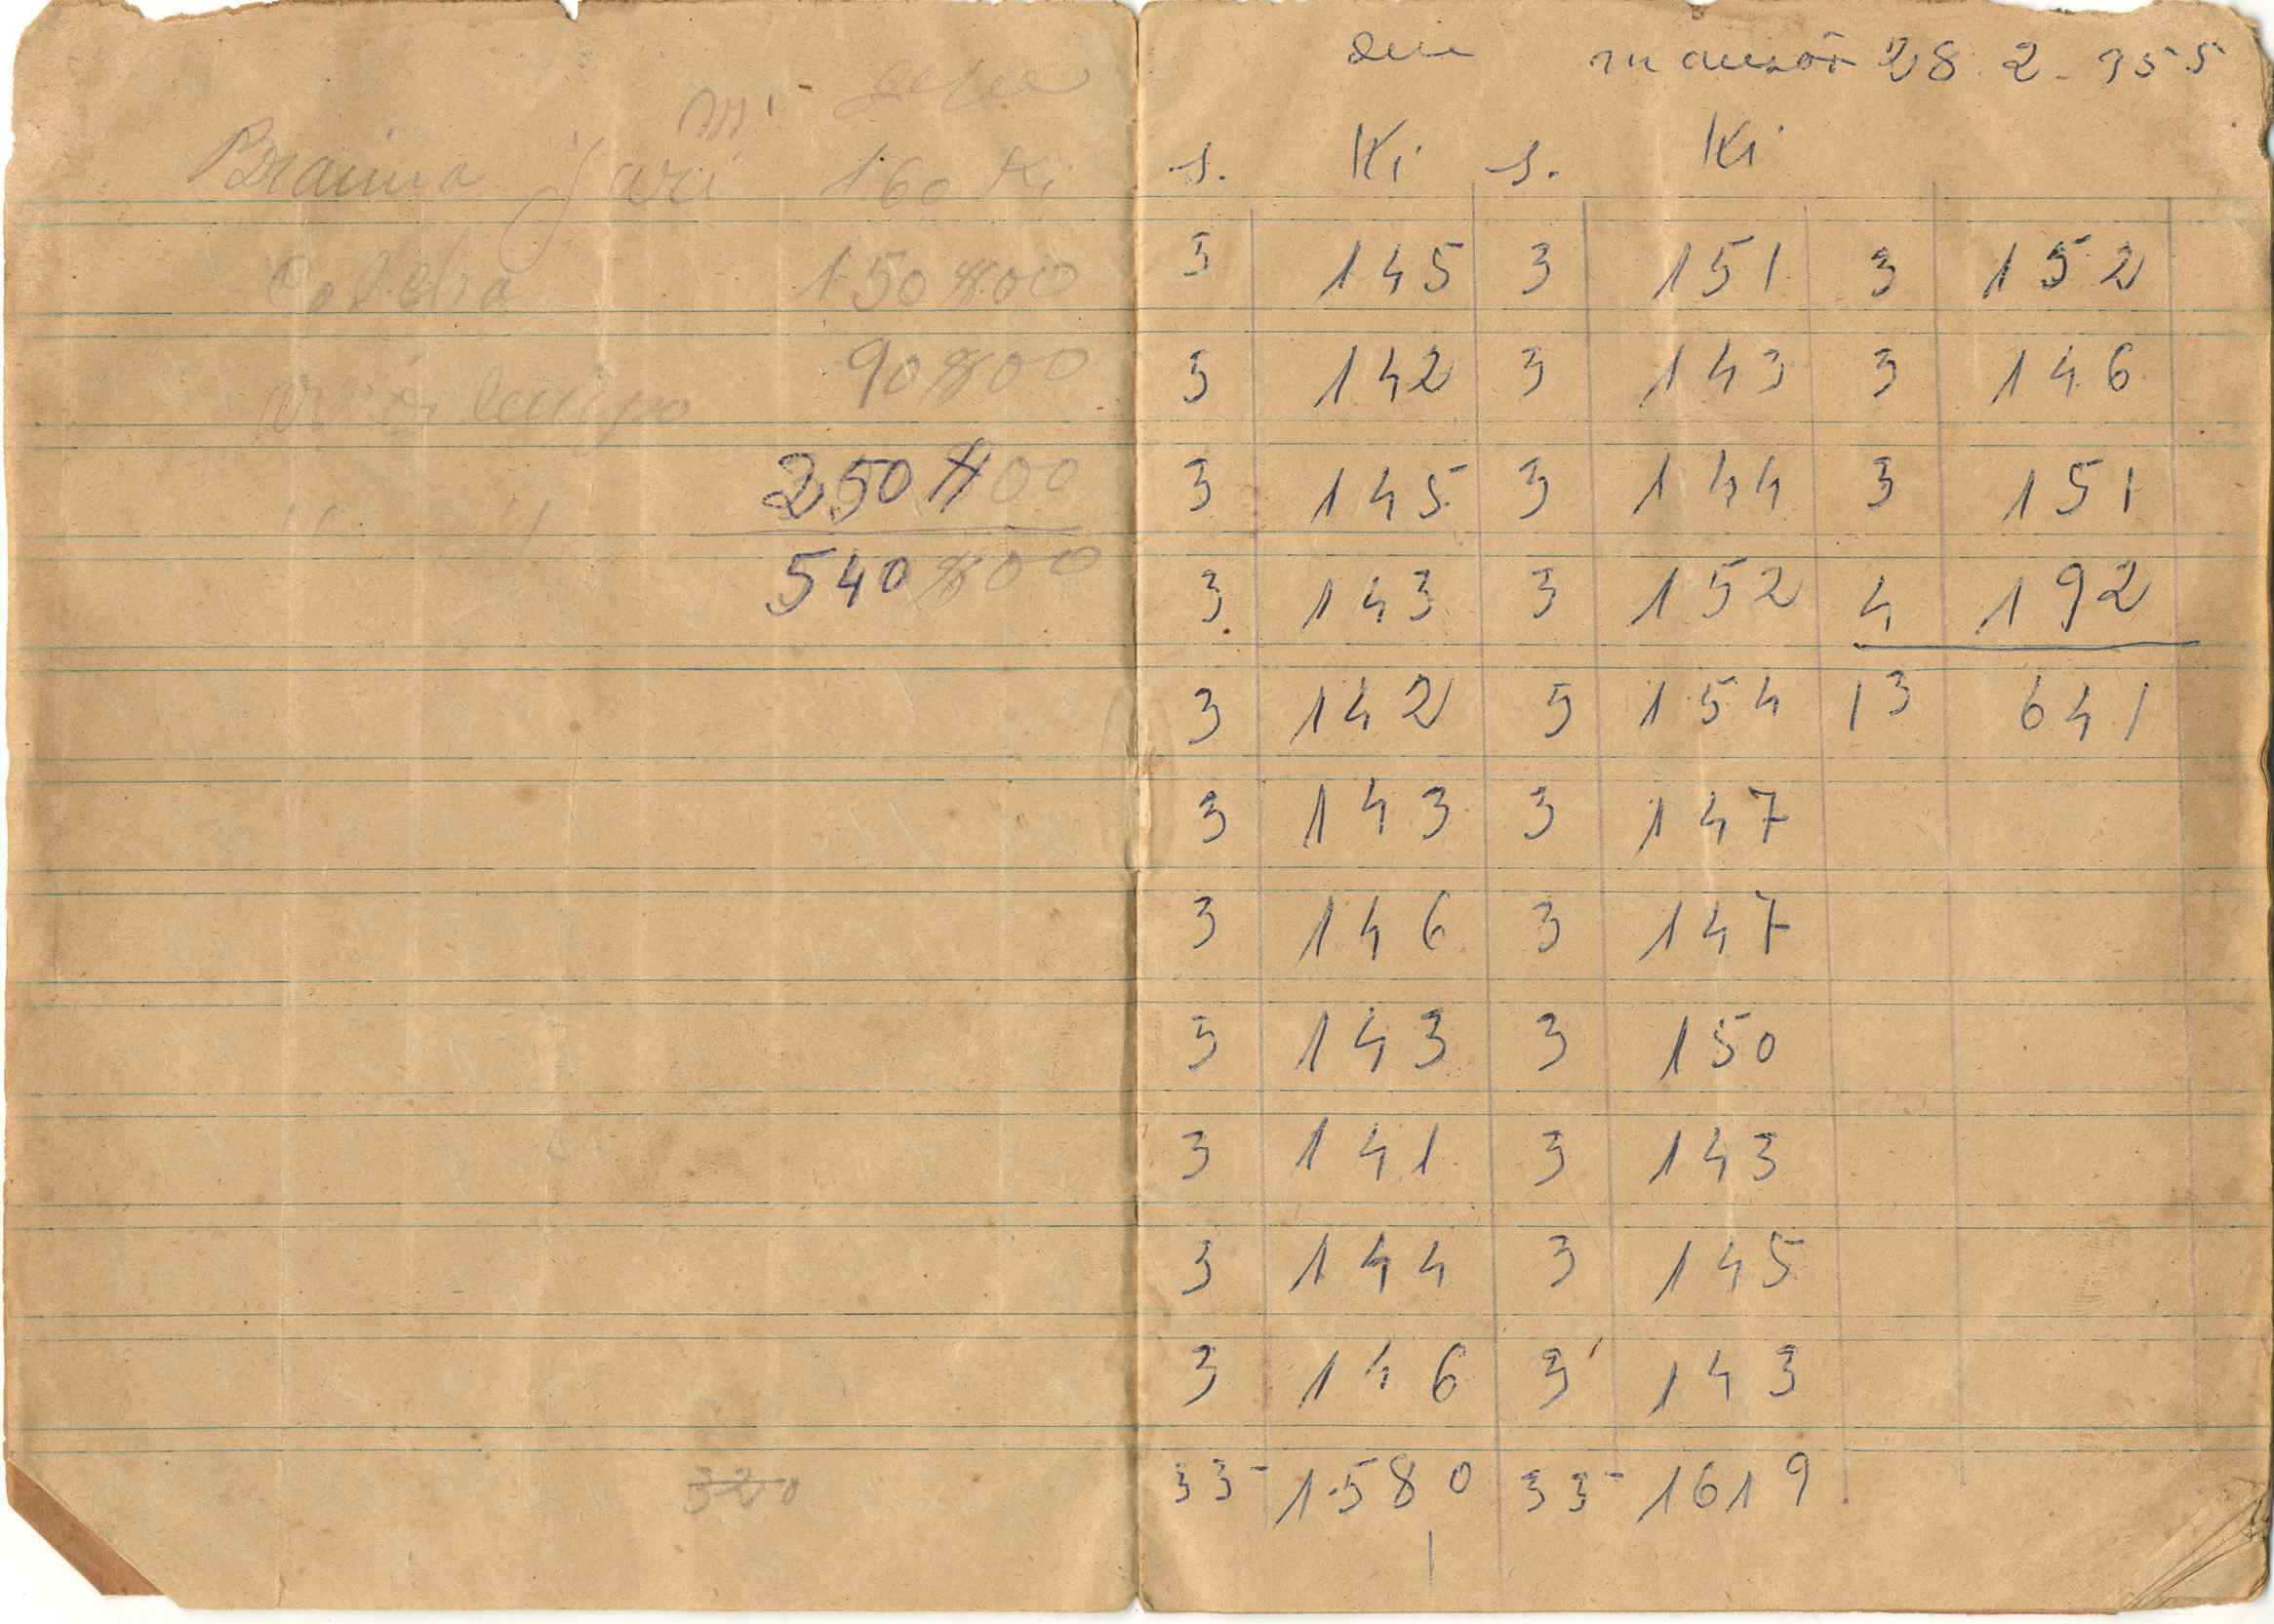 Braima Jari 160 Ki
150$00
90$00
250$00
540$00
320
28 2 955
s. Ki s. Ki
3 145 3 151 3 152
3 142 3 143 3 146
3 145 3 144 3 151
3 143 3 152 4 192
3 142 3 154 13 641
3 143 3 147
3 146 3 147
3 143 3 150
3 141 3 143
3 144 3 145
3 146 3 143
33 - 1580 33 - 1619